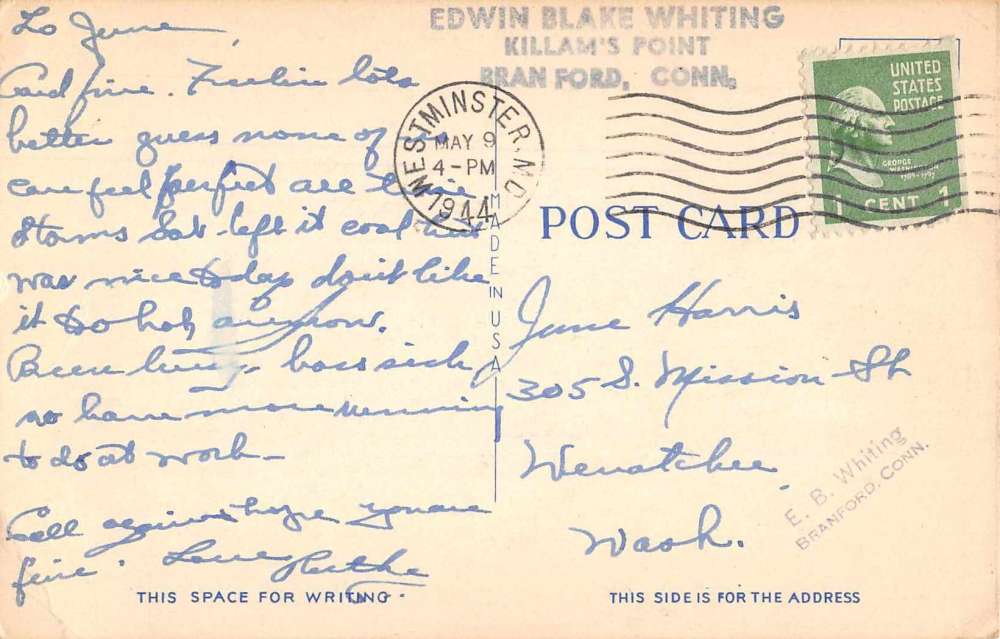 EDWIN BLAKE WHITING
KILLAM'S POINT
BRANFORD, CONN.
WESTMINSTER, MD.
MAY 9
4-PM
1944
UNITED
STATES
POSTAGE
GEORGE
WASHINGTON
1 CENT 1
POST CARD
MADE IN USA
Lo June,
Card fine. Feelin lots
better guess none of us
can feel perfect all time
Storms Sat. left it cool but
was nice today don't like
it so hot anyhow.
Been busy, boss sick
so have more running
to do at work—
Call again hope you are
fine. Love
June Harris
305 S. Mission St
Wenatchee
Wash.
E. B. Whiting
BRANFORD. CONN.
THIS SPACE FOR WRITING
THIS SIDE IS FOR THE ADDRESS